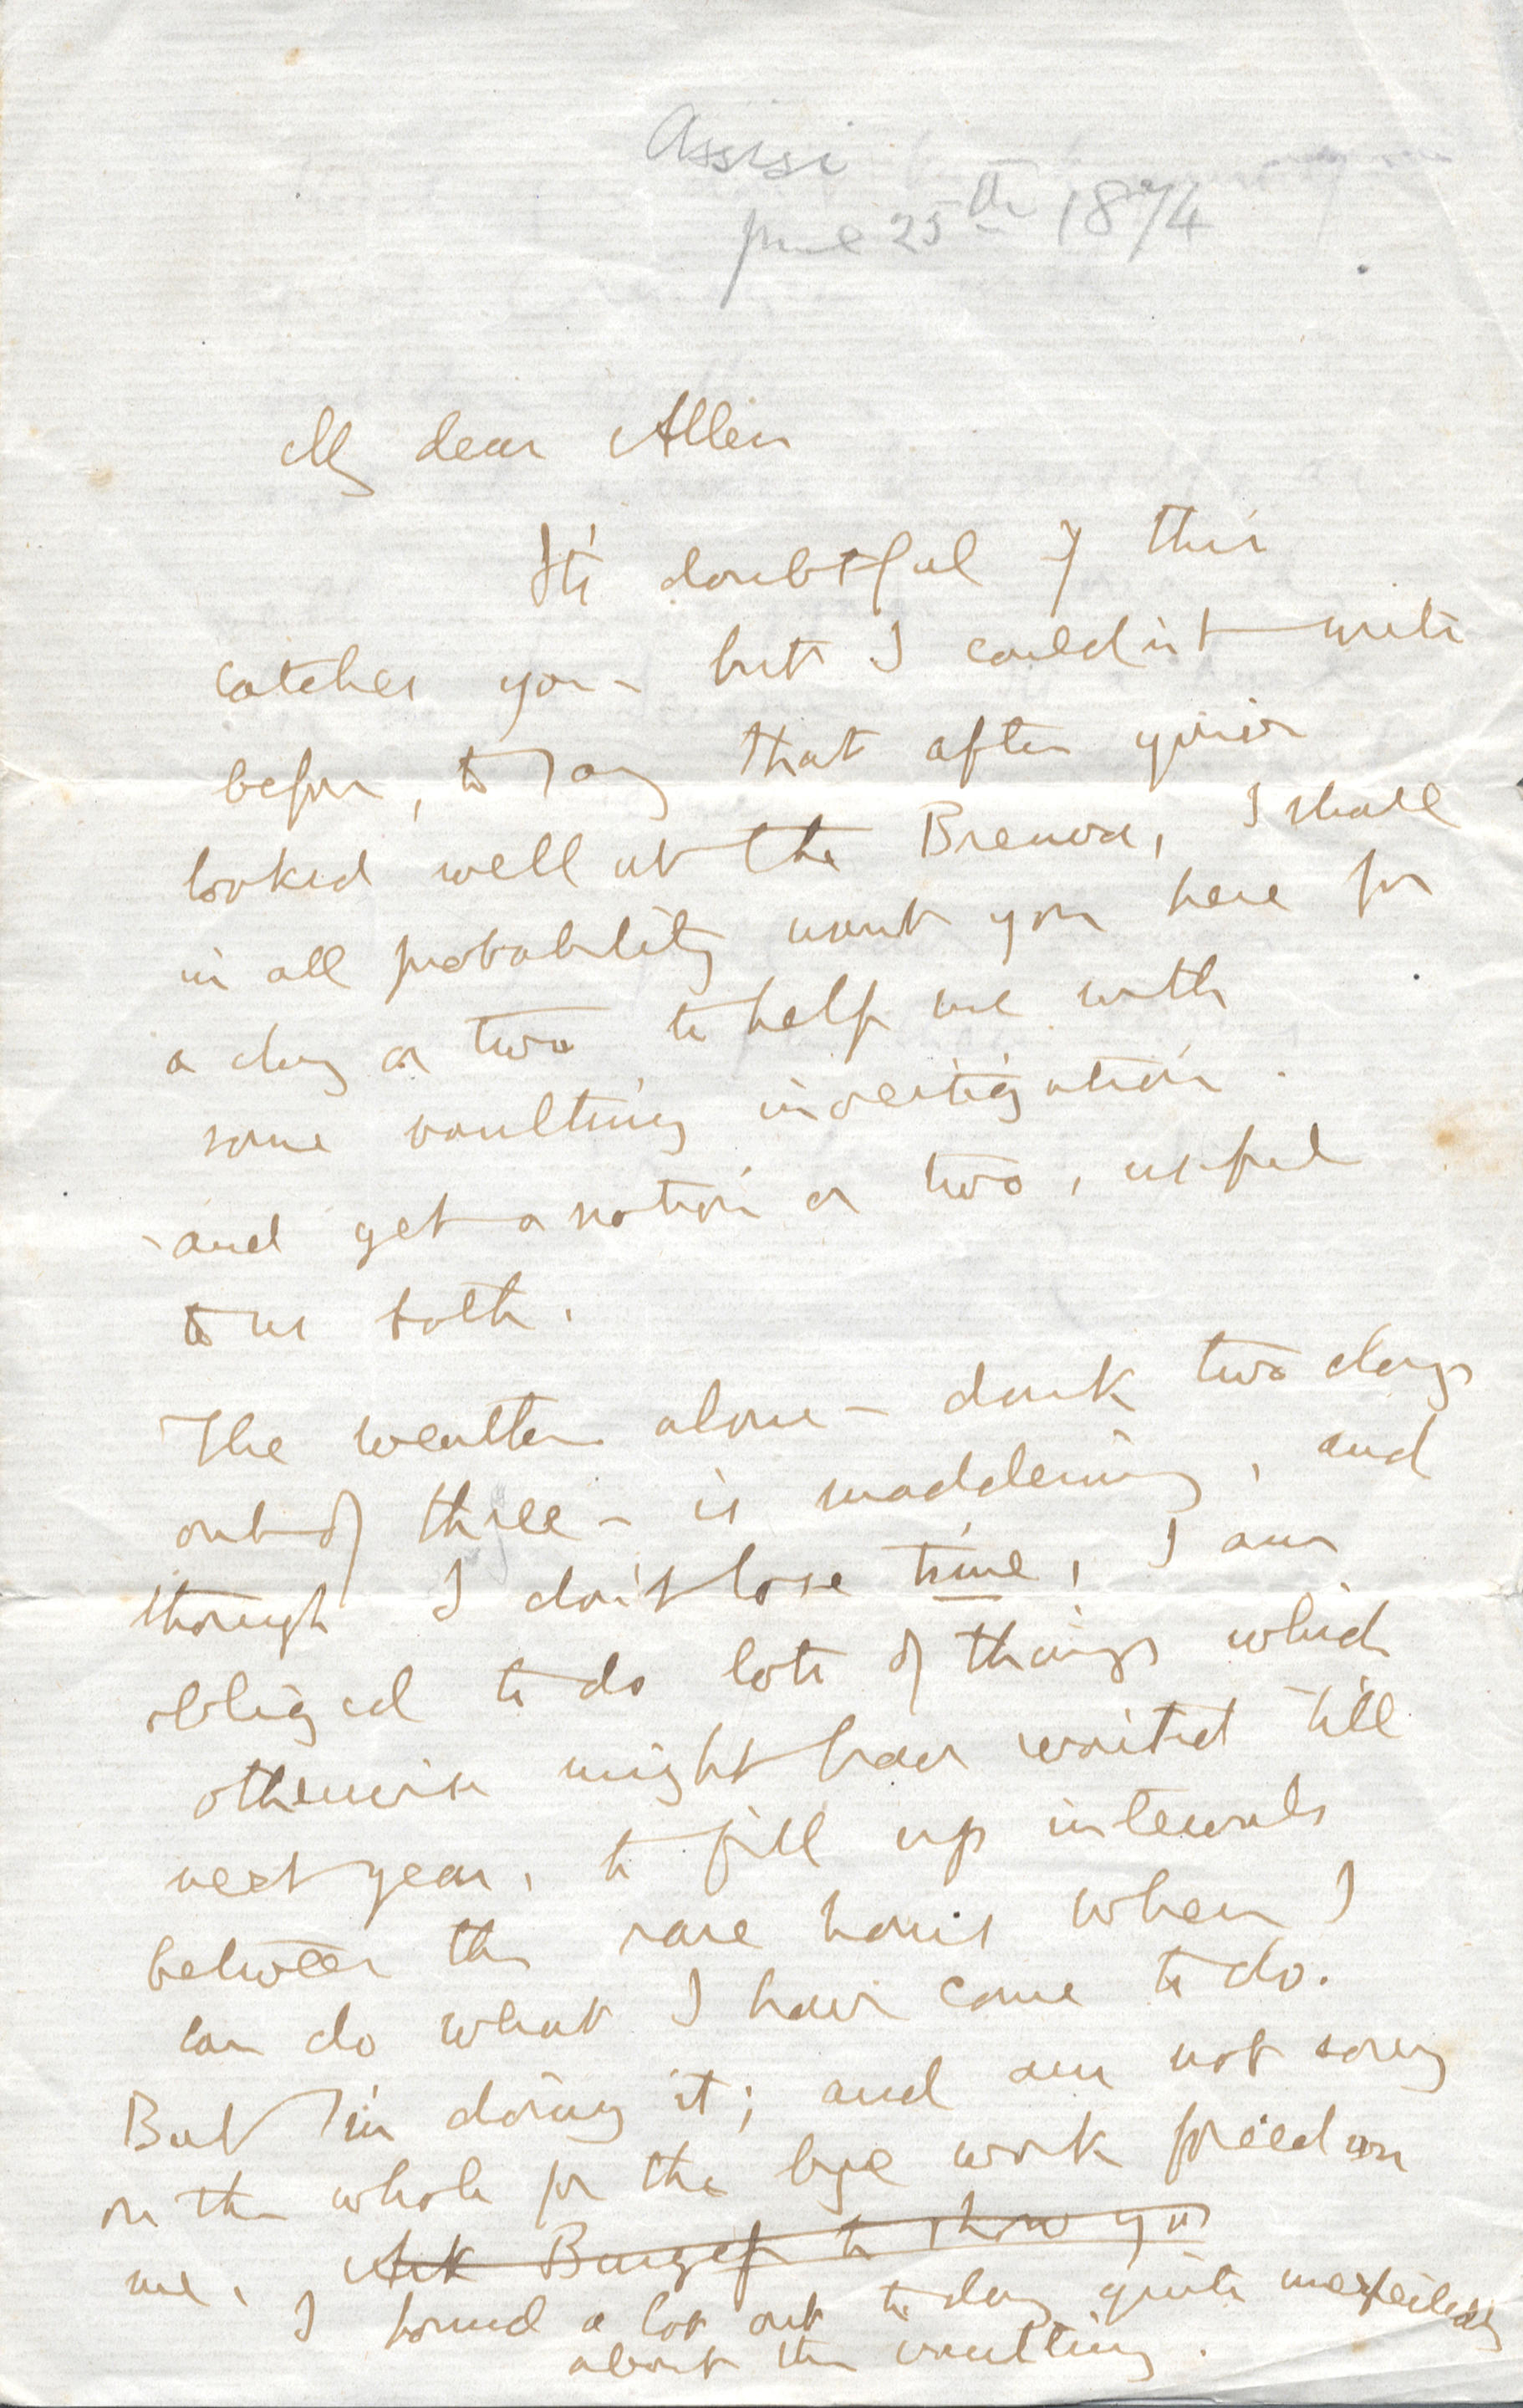 Assisi
June 25th 1874
My dear Allen
It's doubtful if this
catches you - but I couldn't write
before, to say that after you've
looked well at the Brenva, I shall
in all probability want you here for
a day or two to help me with
some vaulting investigation.
- and get a notion or two, useful
to us both.
The weather alone - dark two days
out of three - is maddening, and
though I don't lose time, I am
obliged to do lots of things which
otherwise might have waited till
next year, to fill up intervals
between the rare hours when I
can do what I have come to do.
But I'm doing it; and am not sorry
on the whole for the bye work forced on
me. Ask Burgess to show you
I found a lot out to day quite unexpectedly
about the vaulting.